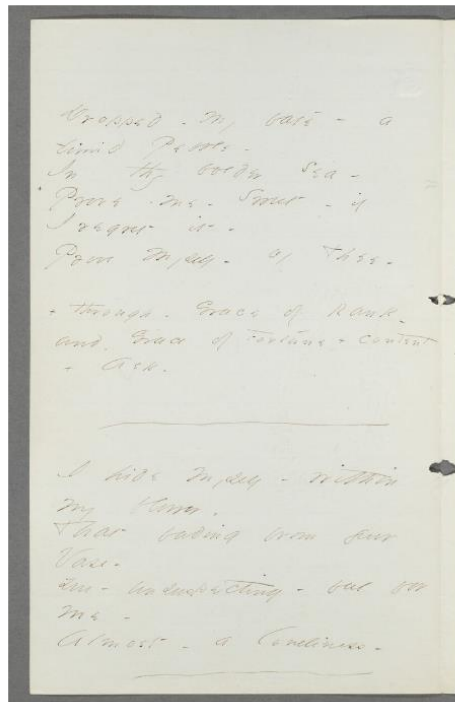 Dropped - my fate - a
timid Pebble -
In thy bolder Sea -
Prove - me - Sweet - if
I regret it -
Prove Myself - of Thee -
+ through - Grace of Rank -
and Grace of Fortune + Content
+ Ask -
I hide Myself - within
my flower,
That fading from your
Vase -
You - unsuspecting - feel for
me -
Almost - a loneliness -